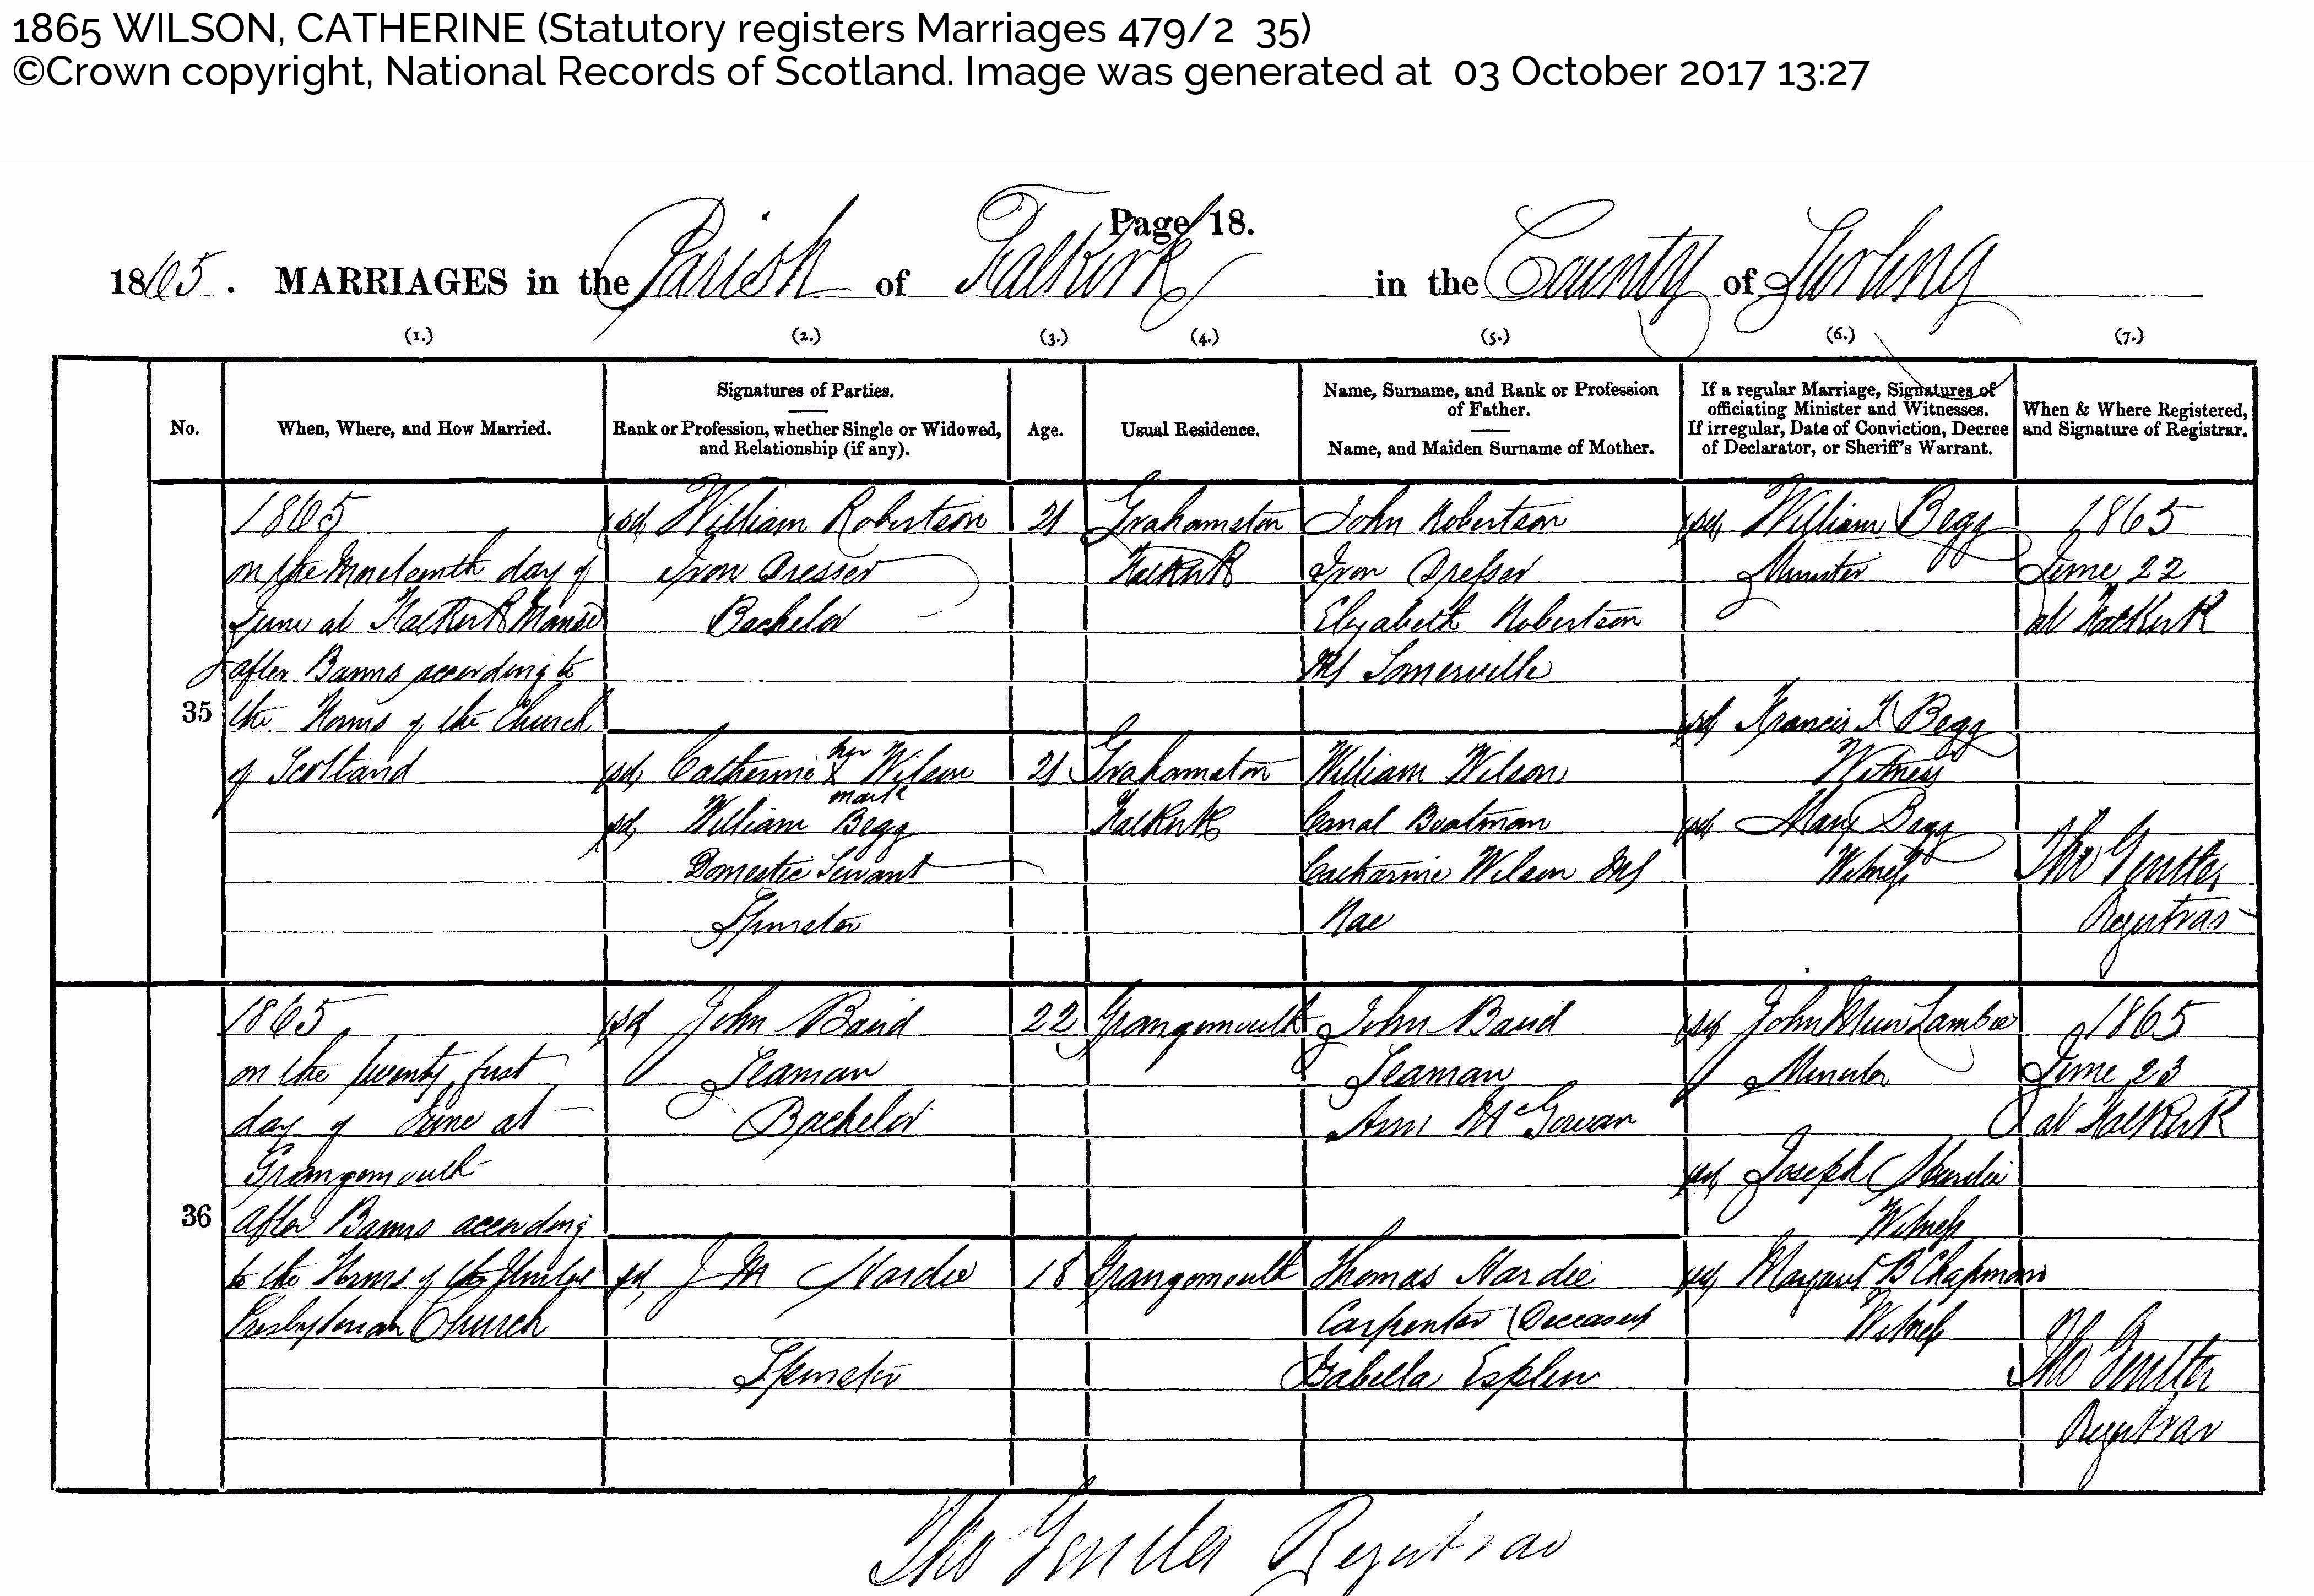 1865 WILSON, CATHERINE (Statutory registers Marriages 479/2 35)
©Crown copyright, National Records of Scotland. Image was generated at 03 October 2017 13:27
Page 18.
1865. MARRIAGES in the Parish of Falkirk in the County of Stirling
(1.) (2.) (3.) (4.) (5.) (6.) (7.)
No.
When, Where, and How Married.
Signatures of Parties.
Rank or Profession, whether Single or Widowed,
and Relationship (if any).
Age.
Usual Residence.
Name, Surname, and Rank or Profession
of Father.
Name, and Maiden Surname of Mother.
If a regular Marriage, Signatures of
officiating Minister and Witnesses.
If irregular, Date of Conviction, Decree
of Declarator, or Sheriff's Warrant.
When & Where Registered,
and Signature of Registrar.
35
1865
on the Nineteenth day of
June at Falkirk Manse
after Banns according to
the Forms of the Church
of Scotland
(sd) William Robertson
Iron Dresser
Bachelor
(sd) Catherine her X Wilson
mark
(sd) William Begg
Domestic Servant
Spinster
21
21
Grahamston
Falkirk
Grahamston
Falkirk
John Robertson
Iron Dresser
Elizabeth Robertson
MS Somerville
William Wilson
Canal Boatman
Catharine Wilson MS
Rae
(sd) William Begg
Minister
(sd) Francis Begg
Witness
(sd) Mary Begg
Witness
1865
June 22
at Falkirk
Registrar
36
1865
on the twenty first
day of June at
Grangemouth
after Banns according
to the Forms of the
Presbyterian Church
(sd) John Baird
Seaman
Bachelor
(sd) J M Hardie
Spinster
22
18
Grangemouth
Grangemouth
John Baird
Seaman
Ann McGowan
Thomas Hardie
Carpenter (Deceased
Isabella Esplin
(sd) John Muir Lambie
Minister
(sd) Joseph Hardie
Witness
(sd) Margaret B Chapman
Witness
1865
June 23
at Falkirk
Registrar
Registrar